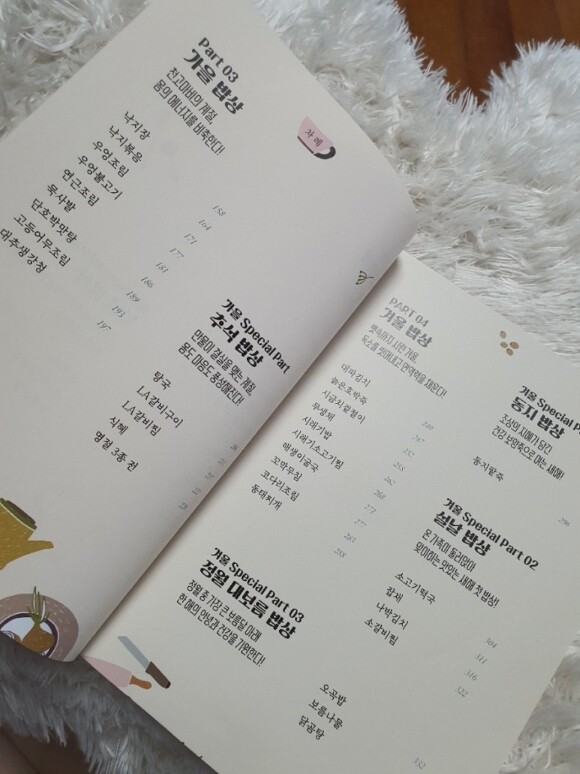 차례
Part 03
가을 밥상
천고마비의 계절,
몸의 에너지를 비축한다!
낙지장
낙지볶음
우엉조림
우엉불고기
연근조림
묵사발
단호박맛탕
고등어무조림
대추생강청
158
164
171
177
181
186
189
193
197
가을 Special Part
추석 밥상
만물이 결실을 맺는 계절,
몸도 마음도 풍성해진다!
탕국
LA갈비구이
LA갈비찜
식혜
명절 3종 전
PART 04
겨울 밥상
뼛속까지 시린 겨울,
독소를 씻어내고 면역력을 채운다!
대파김치
늙은호박죽
시금치겉절이
무생채
시래기밥
시래기소고기찜
매생이굴국
꼬막무침
코다리조림
동태찌개
240
247
252
258
262
268
272
277
283
288
겨울 Special Pa
동지 밥상
조상의 지혜가 담긴
건강 보양죽으로 여는 새해!
동지팥죽
298
겨울 Special Part 02
설날 밥상
온 가족이 둘러앉아
맞이하는 맛있는 새해 첫 밥상!
소고기떡국
잡채
나박김치
소갈비찜
304
311
316
322
겨울 Special Part 03
정월 대보름 밥상
정월 중 가장 큰 보름달 아래
한 해의 안녕과 건강을 기원한다!
오곡밥
보름나물
닭곰탕
332